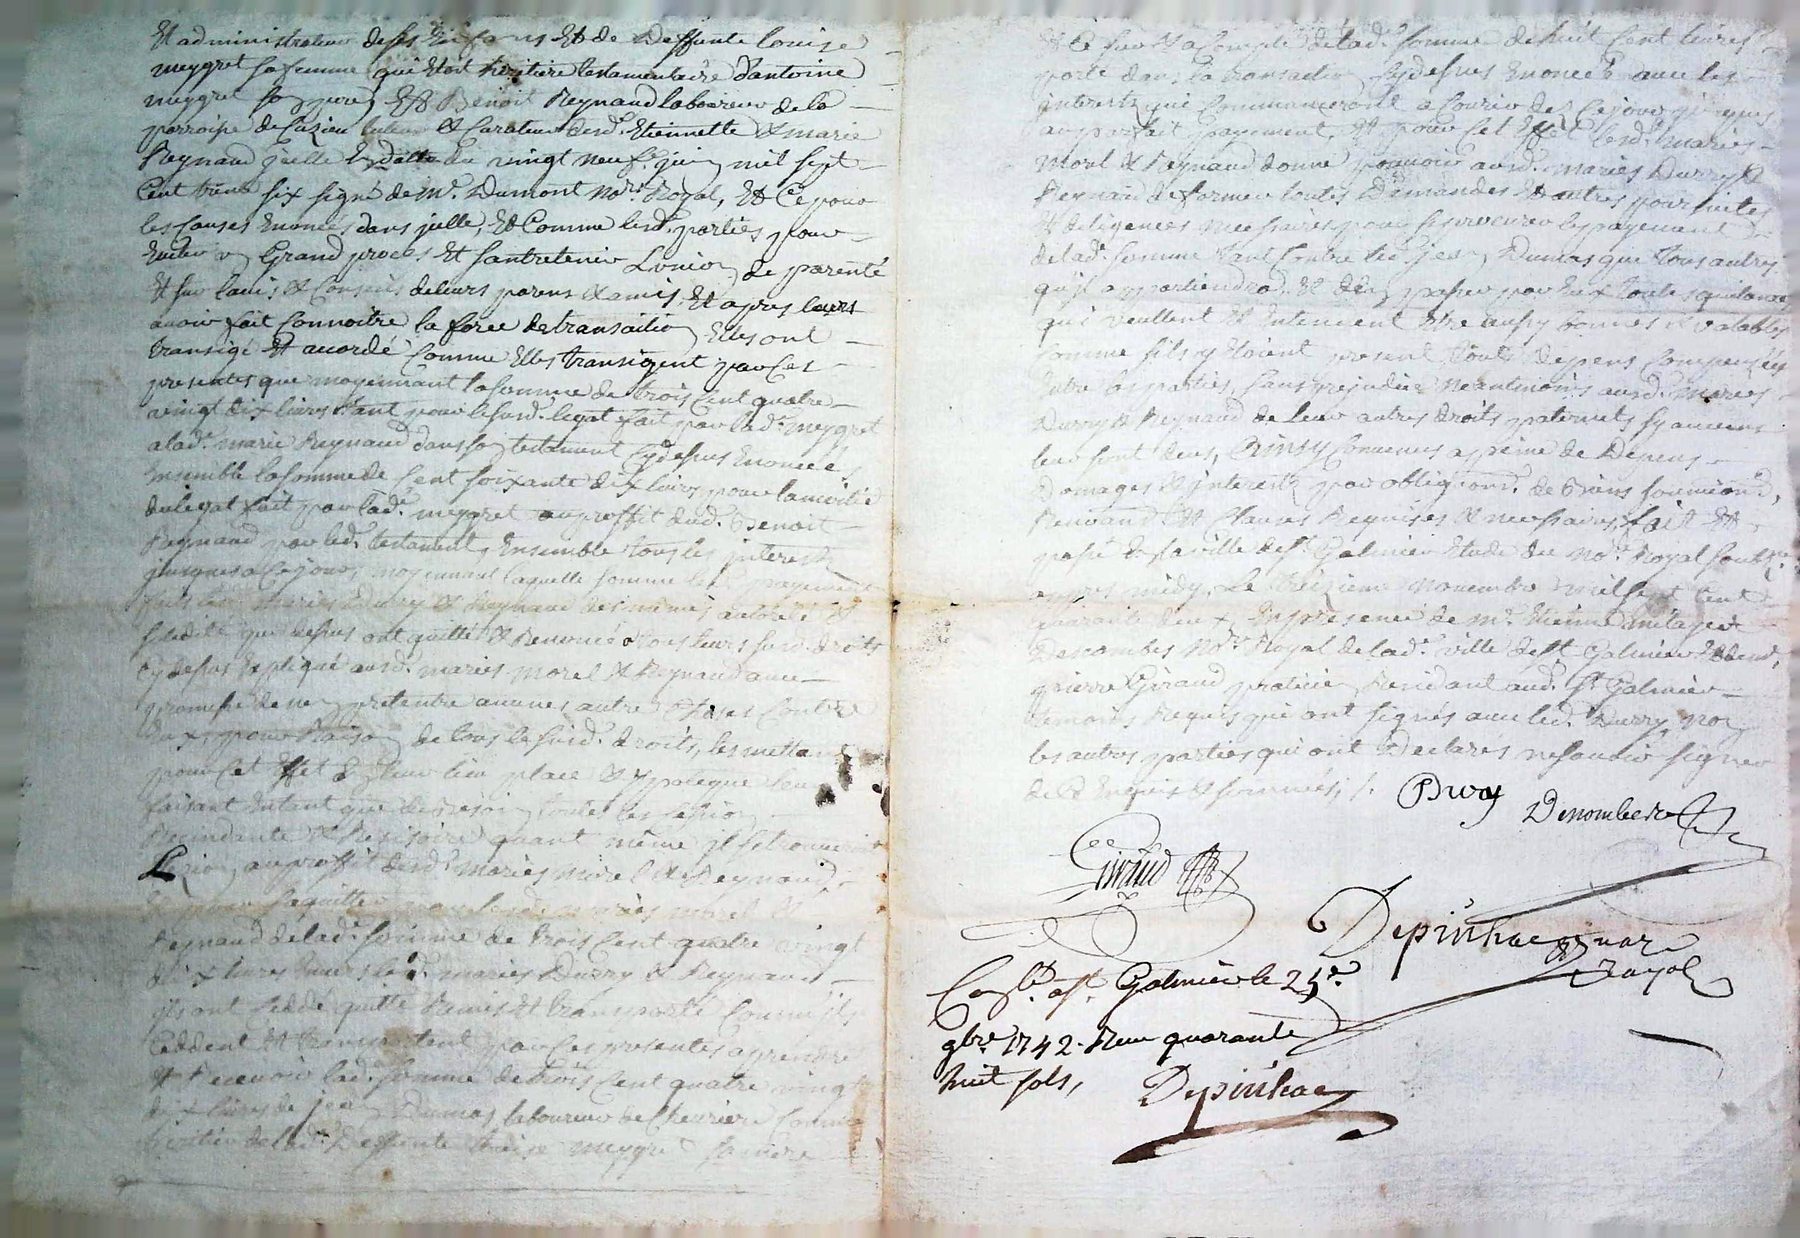 Et administrateur de ses Enfans Et de Deffunte Louise
meygret sa femme qui Etoit heritiere testamentaire d'antoine
meygret son pere, Et Benoit Reynaud laboureur de la
parroipe de Cuzieu tuteur & Curateur desd. Etiennette & marie
Reynaud jcelle En datte du vingt neufe juin mil sept
Cent trente six signé de Me. Dumont Nore. Royal, Et Ce pour
les Causes Enoncés dans jcelle, Et Comme lesd. parties pour
Eviter un Grand procès Et Santretenir Lunion de parenté
Et sur lavis & Conseils de leurs parens & amis Et apres leurs
avoir fait Connoitre la force de transaition Elles ont
transigé Et accordé Comme Elles transigent par Ces
presentes que moyennant la somme de trois Cent quatre
vingt dix livres tant pour le susd. legat fait par lad. meygret
a lad. marie Reynaud dans son testament Cydessus Enoncée,
Ensemble la somme de Cent soixante dix livres pour la moitié
du legat fait par lad. meygret au proffit dud. Benoit
Reynaud par led. testament, Ensemble tous les interests
jusques a Ce jour, moyennant laquelle somme
mariés Durry & Reynaud des mêmes autorité &
que dessus ont quitté & Renoncé a tous leurs susd. droits
Cydessus Expliqué ausd. mariés morel & Reynaud avec
promesse de ne rien pretentre aucunes autre Choses Contre
Eux, pour Raison de tous le susd. droits, les mettant
pour Cet Effet En leur lieu place & ypoteque
faisant Entant que de besoin toutes les Cession
Reyindante & Resisoire quant même il se trouveroit
Lezion, au proffit desd. mariés morel & Reynaud,
Et pour saquitter par lesd. mariés morel &
Reynaud de lad. somme de trois Cent quatre vingt
dix livres Envers lesd. mariés Durry & Reynaud
ils ont Cedde quitte Remis & transporté Comme ils
Ceddent Et transportent par Ces presentes a prendre
& Recevoir lad. somme de trois Cent quatre vingt
dix livres de jean Dumas laboureur de Cherrier Comme
heritier de lad. Deffunte Louise meygret sa mere
Et Ce sur & a Compte de lad. somme de huit Cent livres
porté dans la transaction Cydessus Enoncée avec les
interests qui Commanceront a Courir des Ce jour jusques
au parfait payement, Et pour Cet Effet lesd. mariés
morel & Reynaud donne pouvoir ausd. mariés Durry &
Reynaud de former toutes Demandes Et autres poursuites
& deligences necessaires pour se procurer le payement
de lad. somme tant Contre led. jean Dumas que tous autres
qu'il appartiendra, Et d'En passer par Eux toutes quitances
qui veullent & Entendent Etre aussy bonnes & valables
Comme sils y Etoient present tous Depens Compensés
Entre les parties, sans prejudice neantmoins ausd. mariés
Durry & Reynaud de leur autres droits paternels sy aucuns
leur sont deus, Ainsy Convenus a peine de Depens
Domages & interests par obligeions. de Biens soumiond.,
Renoiand. Et Clauses Requises & necessaires, fait Et
passé En la ville de St. Galmier Etude du Nore. Royal soubsne.
apprès midy, Le treizieme Novembre mil sept Cent
quarante deux, En presence de Me. Etienne mitayer
Descombes Nore. Royal de lad. ville de St. Galmier Et de sr.
pierre Giraud praticien Residant aud. St. Galmier
temoins Requis qui ont signés avec led. Durry, non
les autres parties qui ont Declarés ne savoir signer
de Ce Enquis & sommés, /.
Dury
Denombere
Giraud
Depinhac nore
royal
Conlé. a St. Galmier le 25e.
9bre. 1742. Reçu quarante
huit sols,
Depinhac